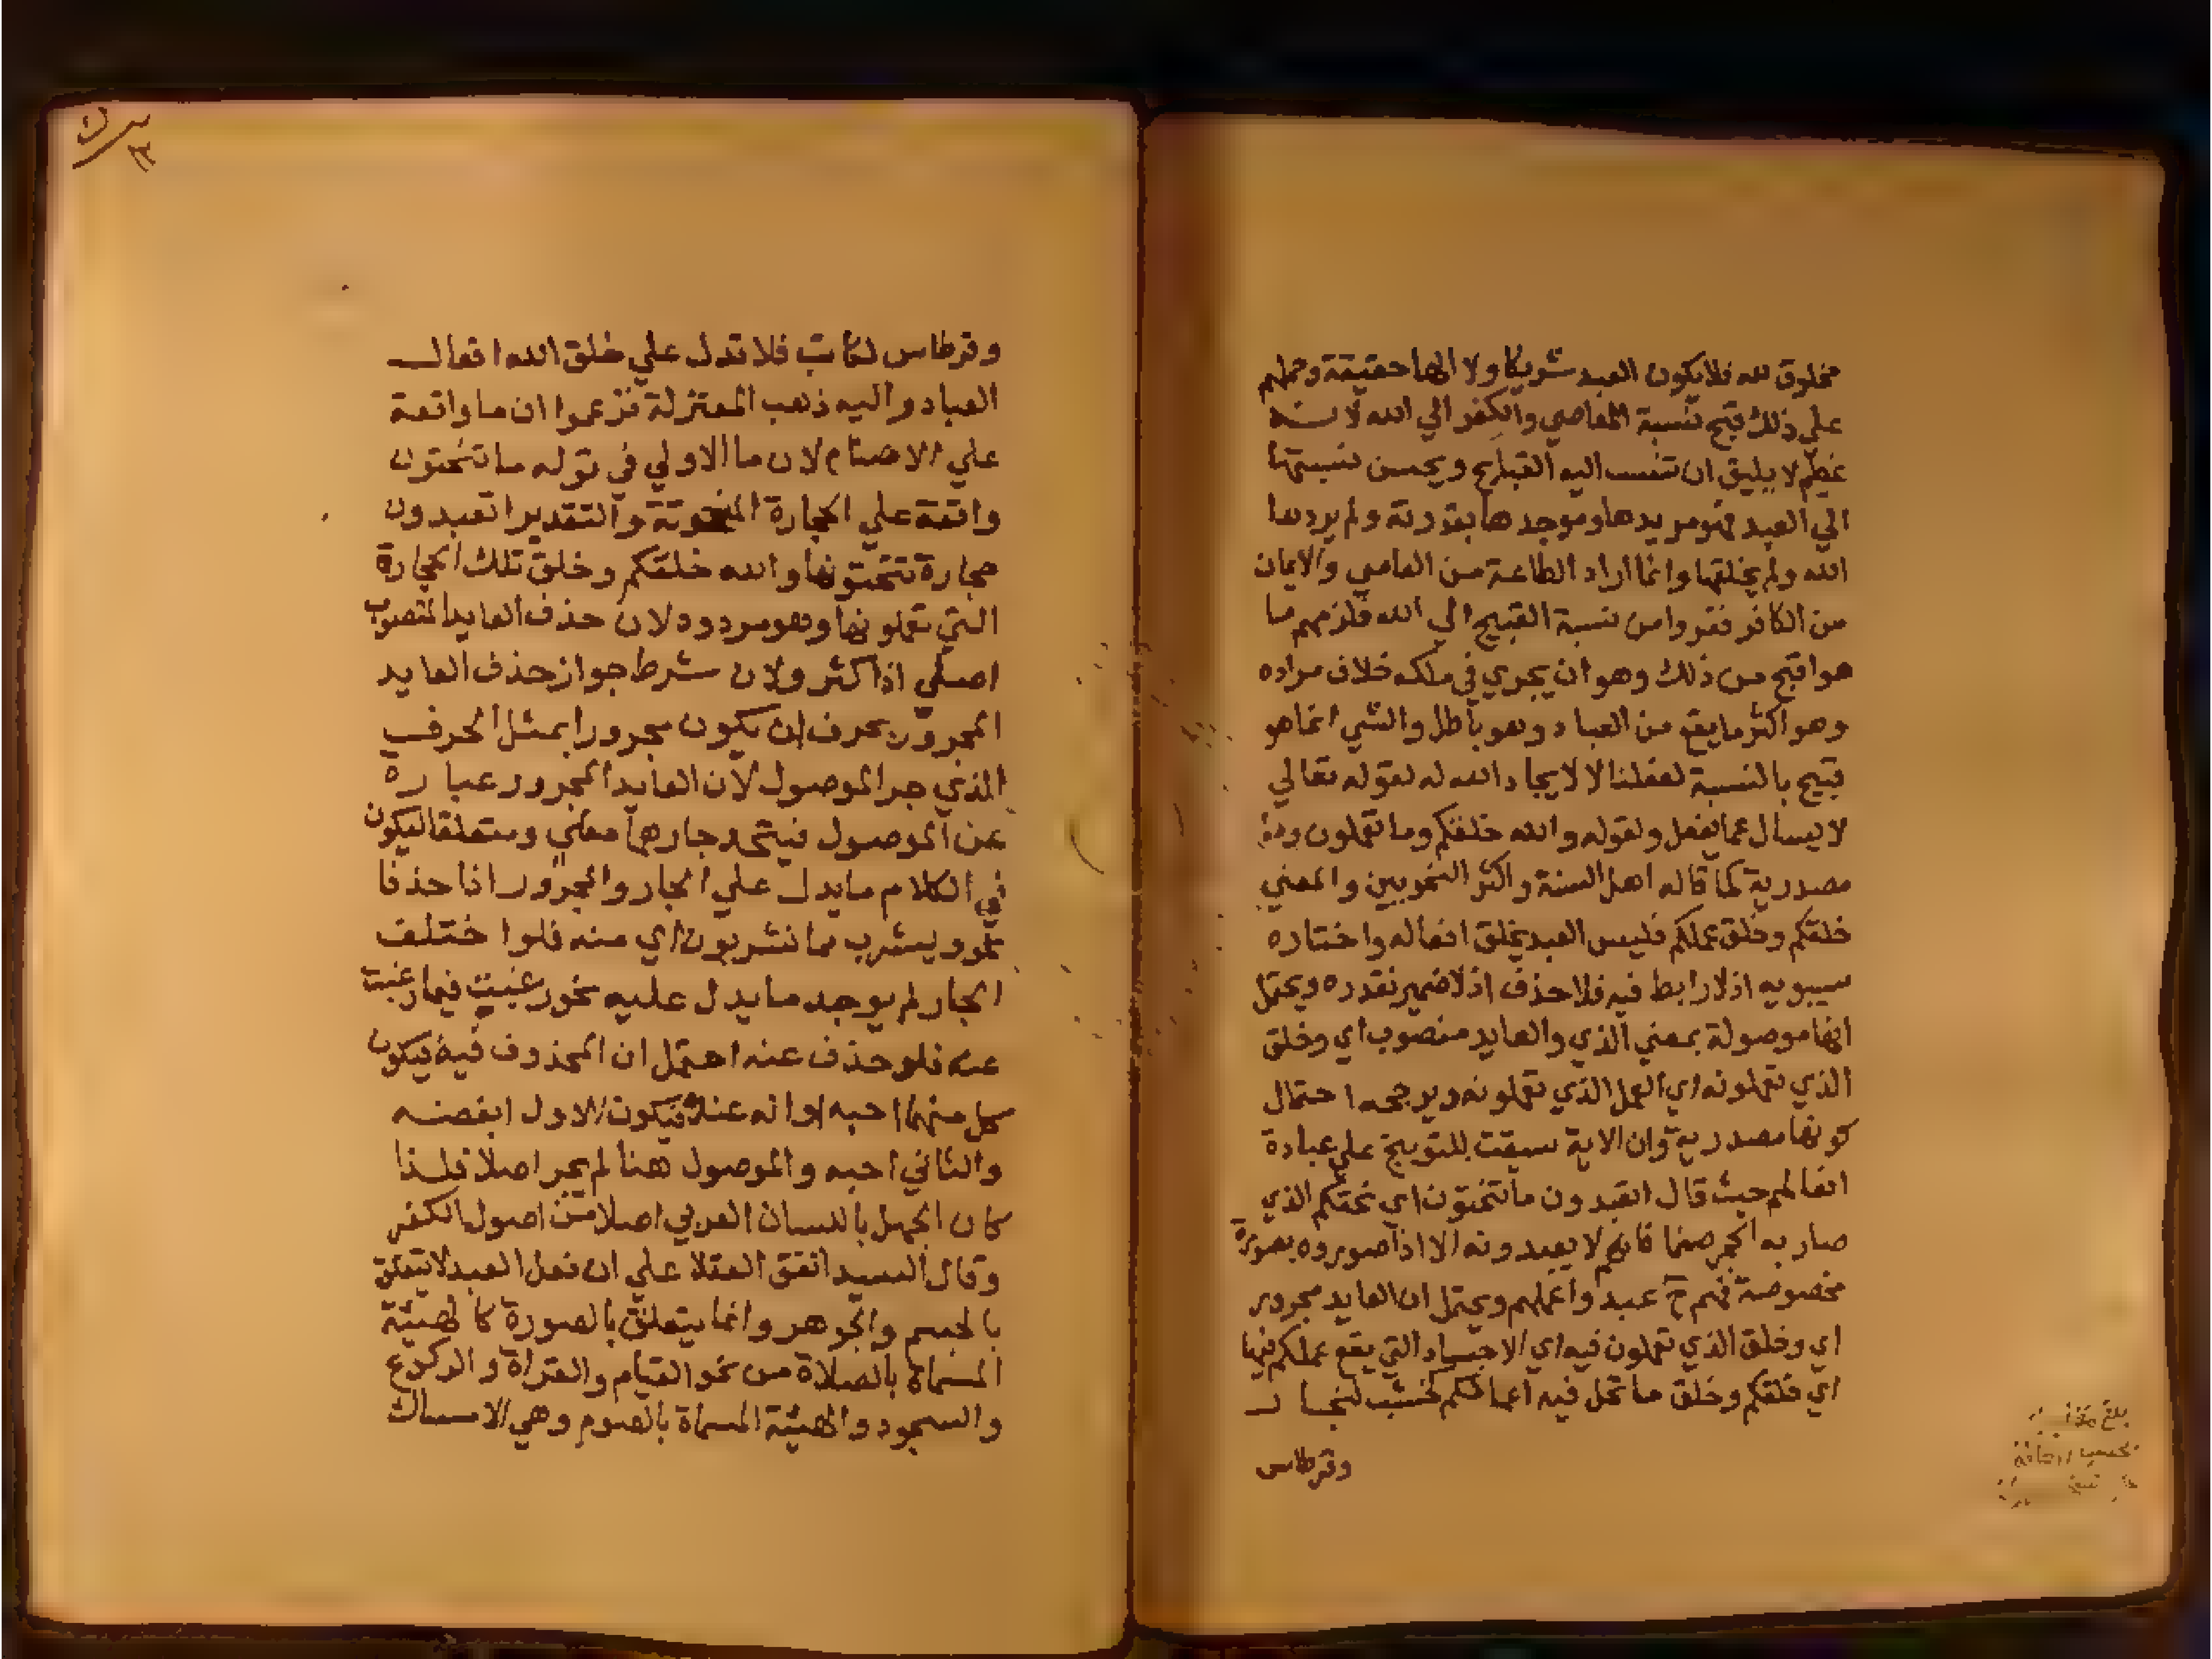 مخلوق لله فلا يكون العبد شريكا ولا الها حقيقة وحملهم
علي ذلك قبح نسبة المعاصي والكفر الي الله لانه
عظيم لا يليق ان تنسب اليه القبايح ويحسن نسبتها
الي العبد فهو مريدها وموجدها بقدرته ولم يردها
الله ولم يخلقها وانما اراد الطاعة من العاصي والايمان
من الكافر ففروا من نسبة القبيح الي الله فلزمهم ما
هو اقبح من ذلك وهو ان يجري في ملكه خلاف مراده
وهو اكثر ما يقع من العباد وهو باطل والشي انما هو
قبيح بالنسبة لفعلنا لا لايجاد الله له لقوله تعالي
لا يسال عما يفعل ولقوله والله خلقكم وما تعملون
مصدرية كما قاله اهل السنة واكثر النحويين والمعني
خلقكم وخلق عملكم فليس العبد يخلق افعاله واختاره
سيبويه اذ لا رابط فيه فلا حذف اذ لا ضمير نقدره ويحتمل
انها موصولة بمعني الذي والعايد منصوب اي وخلق
الذي تعملونه اي العمل الذي تعملونه ويرجحه احتمال
كونها مصدرية وان الاية سيقت للتوبيخ علي عبادة
افعالهم حيث قال اتعبدون ما تنحتون اي نحتكم الذي
صار به الحجر صنما فانهم لا يعبدونه الا اذا صوروه بصورة
مخصوصة فهم ح عبدوا عملهم ويحتمل ان العايد مجرور
اي وخلق الذي تعملون فيه اي الاجساد التي يقع عملكم فيها
اي خلقكم وخلق ما تحل فيه اعمالكم كخشب لنجار
وقرطاس
بلغ مقابلة
وقرطاس لكاتب فلا تدل علي خلق الله افعال
العباد واليه ذهب المعتزلة فزعموا ان ما واقعة
علي الاصنام لان ما الاولي في قوله ما تنحتون
واقعة علي الحجارة المنحوتة والتقدير اتعبدون
حجارة تنحتونها والله خلقكم وخلق تلك الحجارة
التي تعملونها وهو مردود لان حذف العايد المنصوب
اصلي اذا كثر ولان شرط جواز حذف العايد
المجرور بحرف ان يكون مجرورا بمثل الحرف
الذي جر الموصول لان العايد المجرور عباره
عن الموصول فيتحد جارهما معني ومتعلقا ليكون
في الكلام ما يدل علي الجار والمجرور اذا حذفا
نحو ويشرب مما تشربون اي منه فلو اختلف
الجار لم يوجد ما يدل عليه نحو رغبت فيما رغبت
عنه فلو حذف عنه احتمل ان المحذوف فيه فيكون
كل منهما احبه او انه عنه فيكون الاول ابغضه
والثاني احبه والموصول هنا لم يجر اصلا فلذا
كان الجهل باللسان العربي اصلا من اصول الكفر
وقال السيد اتفق العقلا علي ان فعل العبد لا يتعلق
بالجسم والجوهر وانما يتعلق بالصورة كالهيئة
المسماة بالصلاة من نحو القيام والقراة والركوع
والسجود والهيئة المسماة بالصوم وهي الامساك